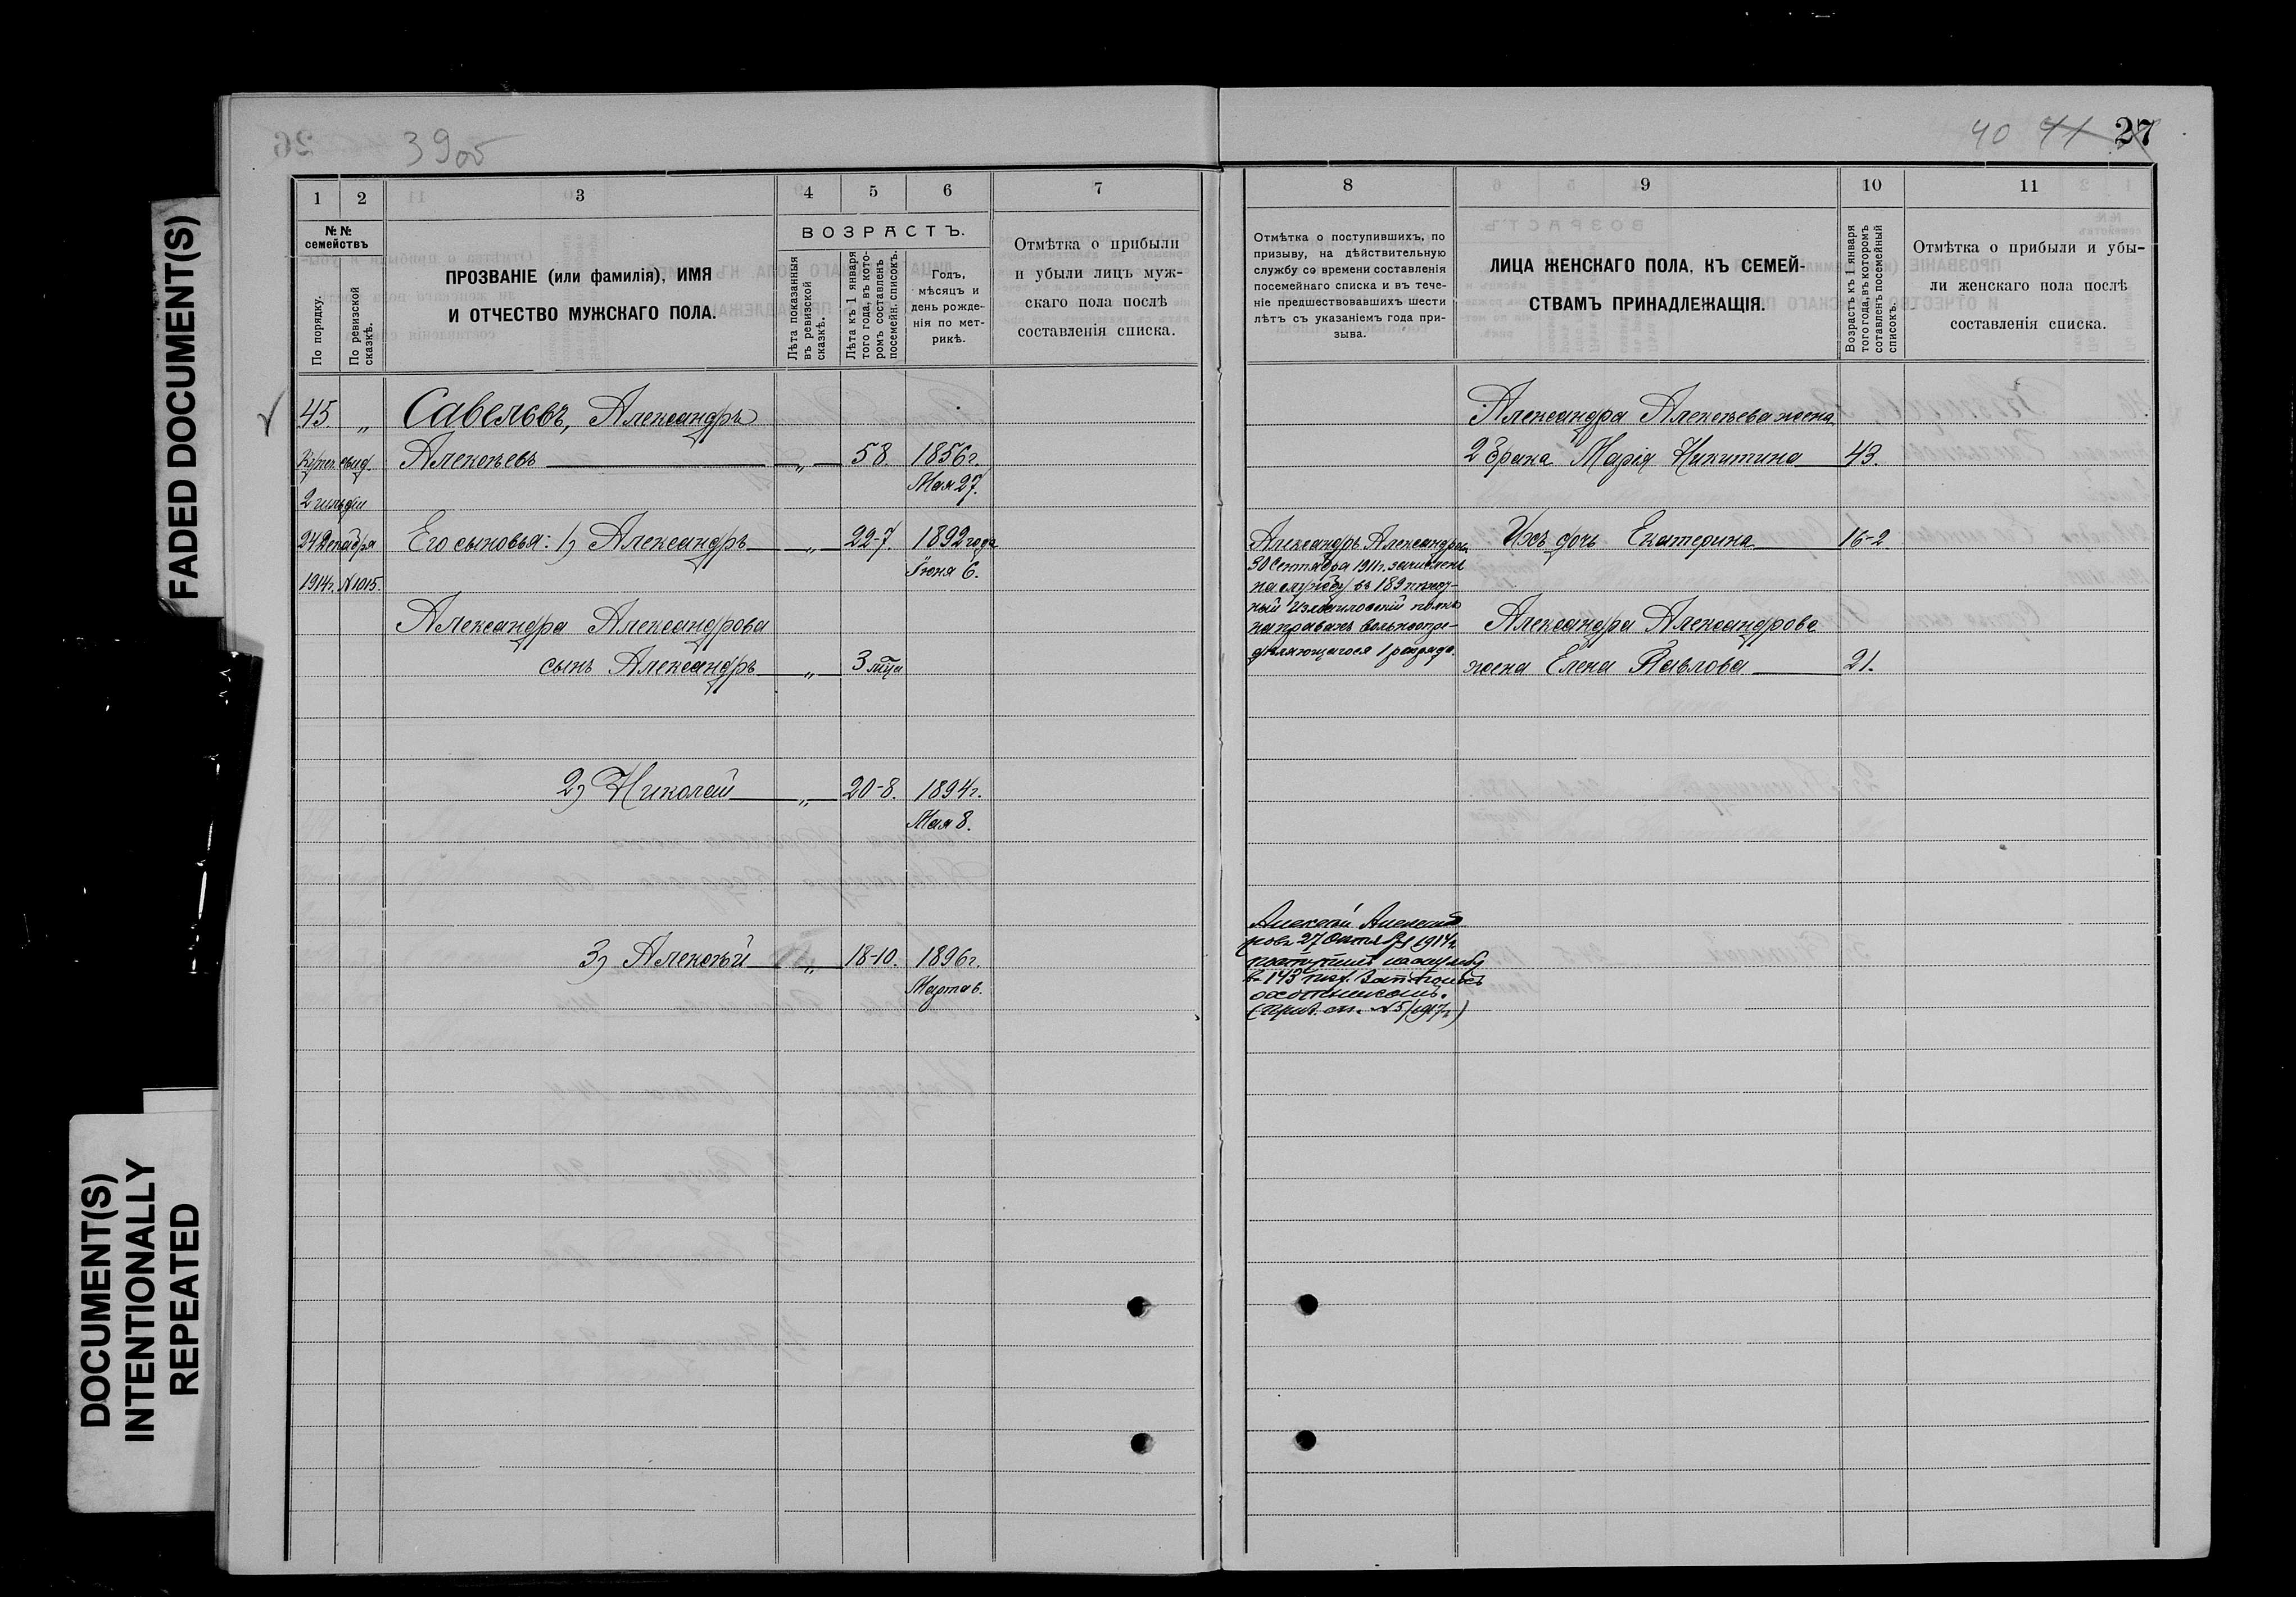 FADED DOCUMENT(S)
DOCUMENT(S)
INTENTIONALLY
REPEATED
39об
1
2
3
4
5
6
7
№ №
семействъ
По порядку.
По ревизской
сказкѣ.
ПРОЗВАНІЕ (или фамилія), ИМЯ
И ОТЧЕСТВО МУЖСКАГО ПОЛА.
ВОЗРАСТЪ.
Лѣта показанныя
въ ревизской
сказкѣ.
Лѣта къ 1 января
того года, въ кото-
ромъ составленъ
посемейн. списокъ.
Годъ,
мѣсяцъ и
день рожде-
нія по мет-
рикѣ.
Отмѣтка о прибыли
и убыли лицъ муж-
скаго пола послѣ
составленія списка.
45 „ Савельевъ, Александръ
Алексѣевъ „ 58. 1856г.
Мая 27.
Купеч. свид.
2 гильдіи
24 Декабря
1914г. №1015.
Его сыновья: 1) Александръ „ 22-7. 1892 года
Іюня 6.
Александра Александрова
сынъ Александръ „ 3 мѣца
2) Николай „ 20-8. 1894г.
Мая 8.
3) Алексѣй „ 18-10. 1896г.
Марта 6.
40 41 27
8
9
10
11
Отмѣтка о поступившихъ, по
призыву, на дѣйствительную
службу со времени составленія
посемейнаго списка и въ тече-
ніе предшествовавшихъ шести
лѣтъ съ указаніемъ года при-
зыва.
ЛИЦА ЖЕНСКАГО ПОЛА, КЪ СЕМЕЙ-
СТВАМЪ ПРИНАДЛЕЖАЩІЯ.
Возрастъ къ 1 января
того года, въ которомъ
составленъ посемейный
списокъ.
Отмѣтка о прибыли и убы-
ли женскаго пола послѣ
составленія списка.
Александра Алексѣева жена
2 брака Марія Никитина 43.
Ихъ дочь Екатерина 16-2.
Александръ Александровъ
30 Сентября 1911г. зачисленъ
на службу въ 189 пѣхот-
ный Измаиловскій полкъ
на правахъ вольноопре-
дѣляющагося 1 разряда.
Александра Александрова
жена Елена Павлова 21.
Алексѣй Александ
ровъ 27 Октября 1914г
поступилъ на службу
въ 143 пѣх. Зап. полкъ
охотникомъ.